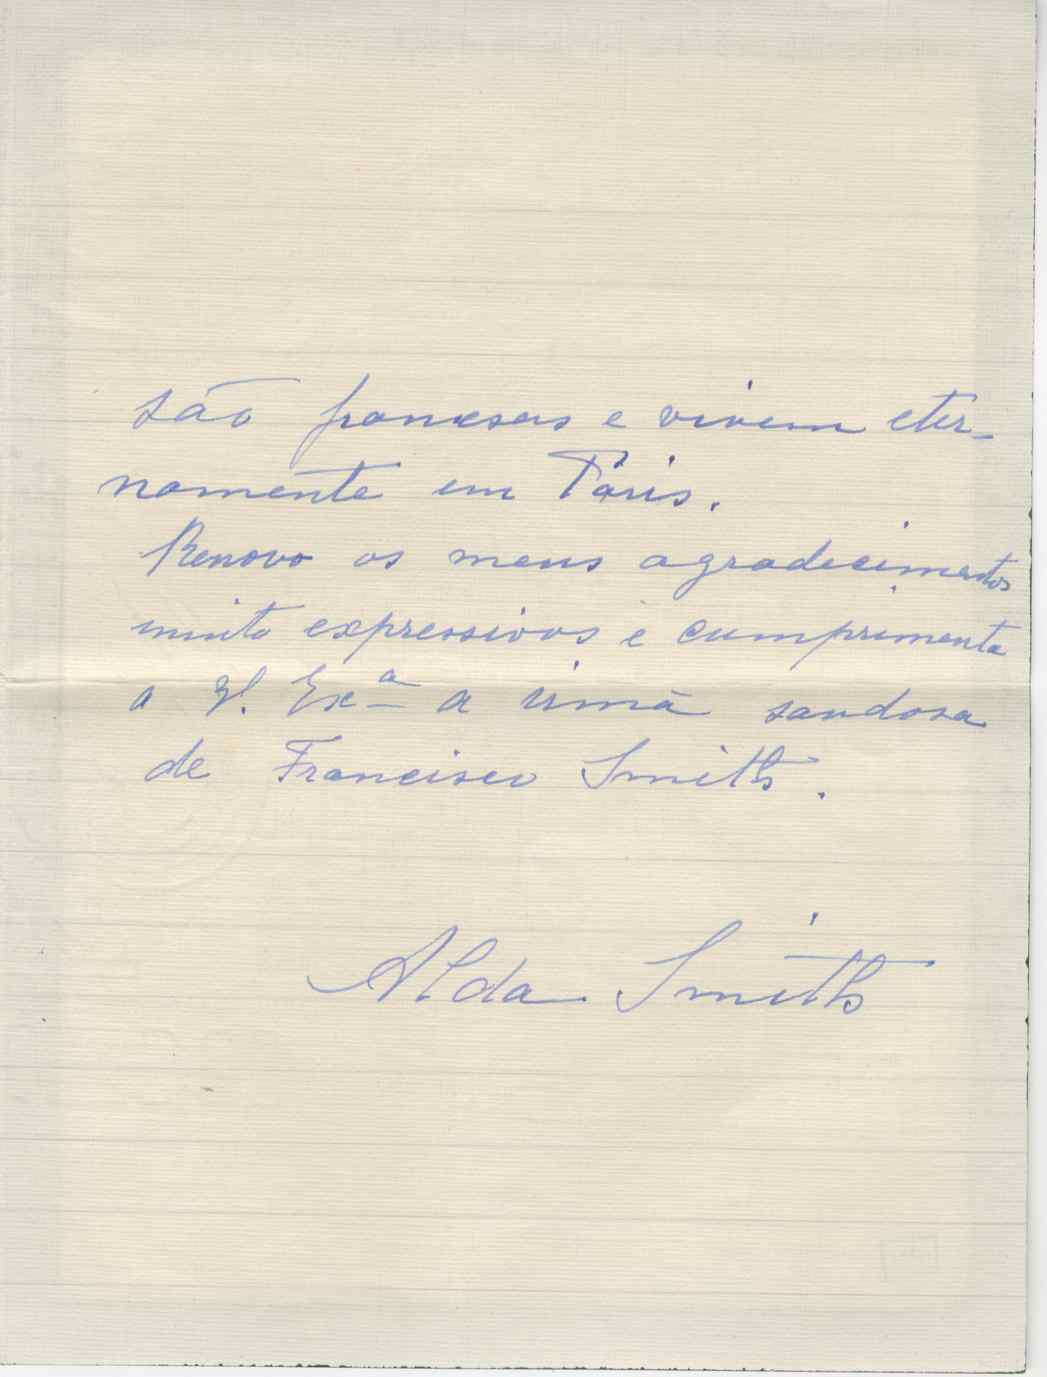 são francesas e vivem eter-
namente em Paris.
Renovo os meus agradecimentos
muito expressivos e cumprimenta
a V. Exª a irmã saudosa
de Francisco Smith.
Alda Smith